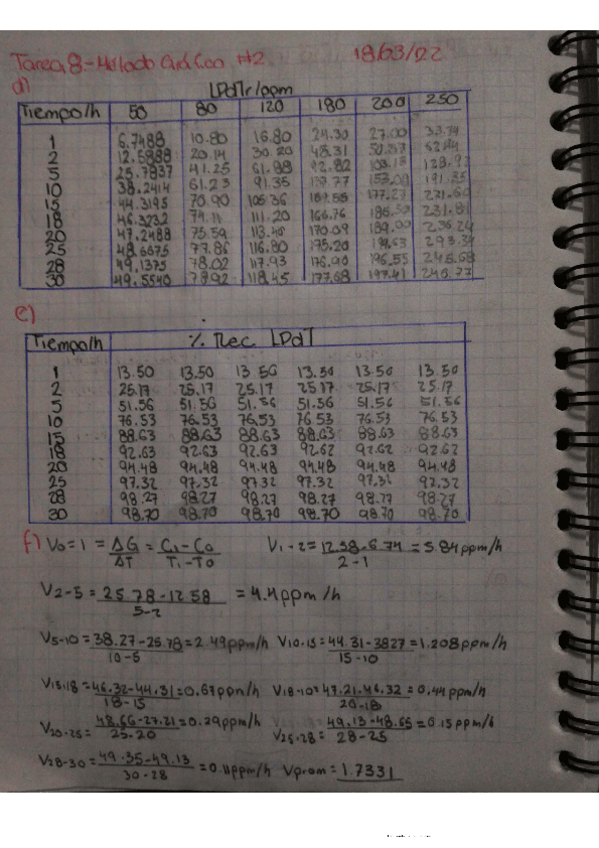 Tarea 8.- Metodo Grafico #2 18/03/22
d)
[Pd]r/ppm
Tiempo/h 50 80 120 180 200 250
1 6.7488 10.80 16.80 24.30 27.00 33.74
2 12.5888 20.14 30.20 45.31
5 25.7837 41.25 61.88 92.82 128.92
10 38.2414 61.23 91.35 153.09
15 44.3195 70.90 106.36 177.27
18 46.3232 111.20 166.76
20 47.2488 75.59 113.40 170.09 189.00
25 48.6675 77.86 116.80 175.20
28 49.1375 78.02 117.93 176.90 196.55 245.68
30 49.5540 118.45 177.68 197.41
e)
Tiempo/h % Rec [Pd]
1 13.50 13.50 13.50 13.50 13.50 13.50
2 25.17 25.17 25.17 25.17 25.17 25.17
5 51.56 51.56 51.56 51.56 51.56 51.56
10 76.53 76.53 76.53 76.53 76.53 76.53
15 88.63 88.63 88.63 88.63 88.63 88.63
18 92.63 92.63 92.63 92.62 92.62 92.62
20 94.48 94.48 94.48 94.48 94.48 94.48
25 97.32 97.32 97.32 97.32 97.31 97.32
28 98.27 98.27 98.27 98.27 98.27 98.27
30 98.70 98.70 98.70 98.70 98.70 98.70
f) V0=1 = ΔG/ΔT = C1-C0/T1-T0 V1-2 = 12.58-6.74/2-1 = 5.84ppm/h
V2-5 = 25.78-12.58/5-2 = 4.4ppm/h
V5-10 = 38.27-25.78/10-5 = 2.49ppm/h V10-15 = 44.31-3827/15-10 = 1.208ppm/h
V15-18 = 46.32-44.31/18-15 = 0.67ppm/h V18-10 = 47.21-46.32/20-18 = 0.44ppm/h
V20-25 = 48.66-27.21/25-20 = 0.29ppm/h V25-28 = 49.13-48.65/28-25 = 0.15ppm/h
V28-30 = 49.35-49.13/30-28 = 0.11ppm/h Vprom = 1.7331